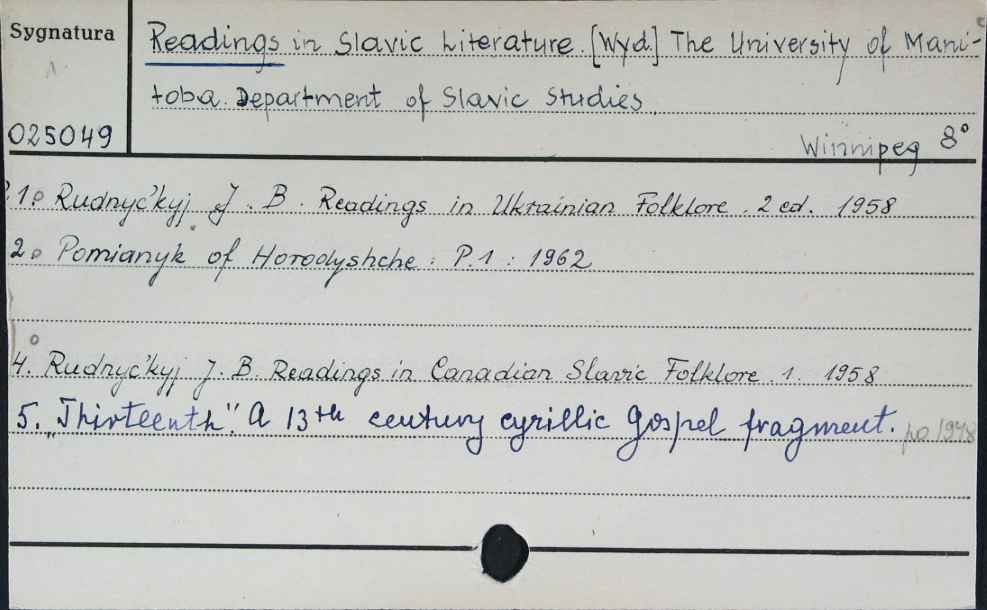 Sygnatura
Readings in Slavic Literature. [Wyd.] The University of Mani-
toba. Department of Slavic Studies
025049
Winnipeg 8°
1. Rudnyc'kyj J. B. Readings in Ukrainian Folklore. 2 ed. 1958
2. Pomianyk of Horodyshche: P.1: 1962
4. Rudnyc'kyj J. B. Readings in Canadian Slavic Folklore. 1. 1958
5. „Thirteenth". A 13th century cyrillic Gospel fragment. po 1948